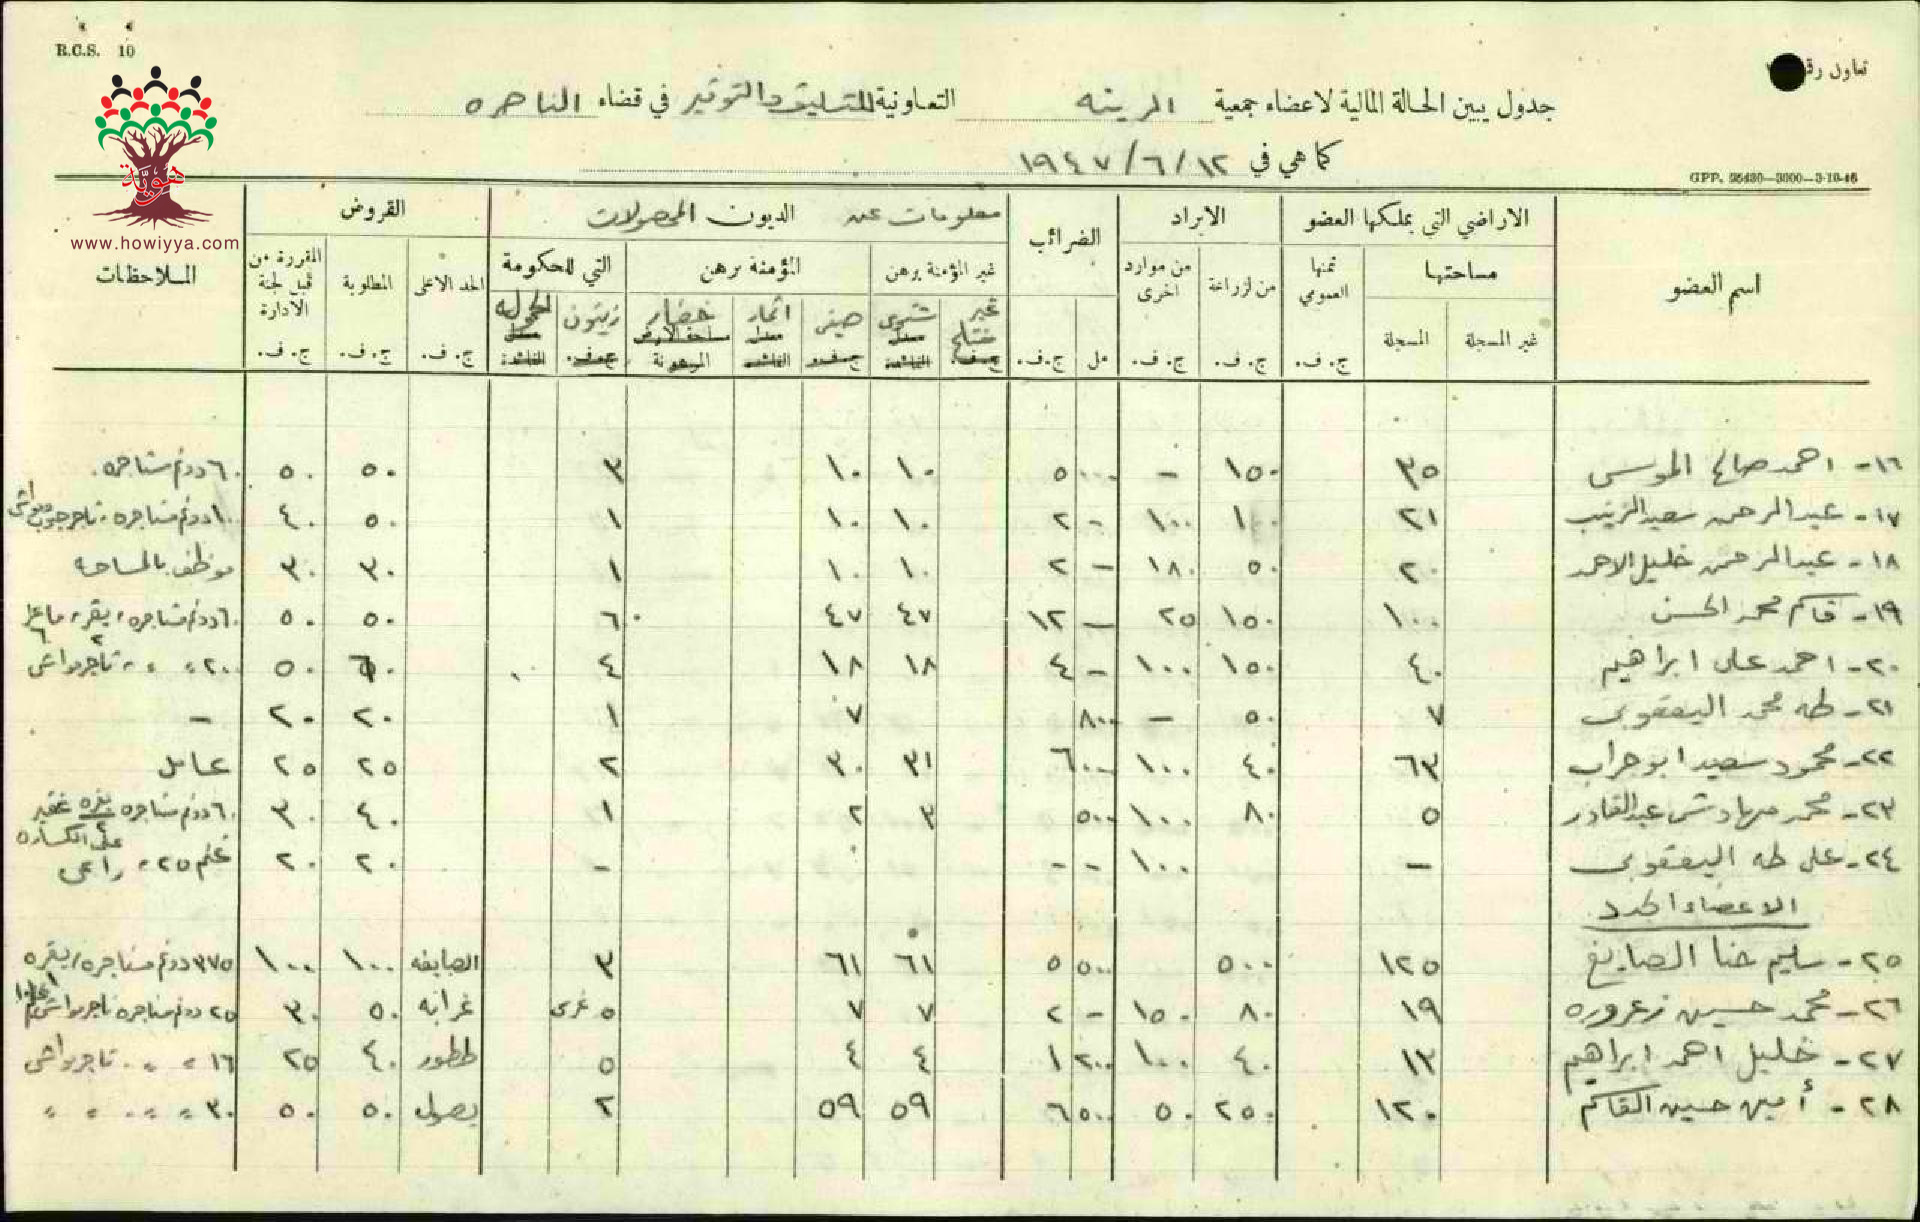 R.C.S. 10
تعاون رقم
جدول يبين الحالة المالية لاعضاء جمعية الرينه التعاونية للتسليف والتوفير في قضاء الناصره
كما هي في ١٢/٦/١٩٤٧
GPP. 25430—3000—3-10-46
هوية
www.howiyya.com
اسم العضو
الاراضي التي يملكها العضو
الايراد
الضرائب
معلومات عن الديون المحصولات
القروض
الملاحظات
مساحتها
ثمنها العمومي
من الزراعة
من موارد اخرى
غير المؤمنة برهن
المؤمنة برهن
التي للحكومة
الحد الاعلى
المطلوبة
المقررة من قبل لجنة الادارة
غير المسجلة
المسجلة
غير
شتوي
صيفي
اثمار
خضار
زيتون
مساحة الارض المرهونة
ج. ف.
ج. ف.
ج. ف.
مل
ج. ف.
ج. ف.
ج. ف.
ج. ف.
١٦- احمد صالح الموسى ٣٥ ١٥٠ – ٥٠٠٠ ١٠ ١٠ ٣ ٥٠ ٥٠ ٦٠ دونم مستاجره
١٧- عبد الرحمن سعيد الزينب ٢١ ١٠٠ ١٠٠ - ٢ ١٠ ١٠ ١ ٥٠ ٤٠ ١٠٠ دونم مستاجره، تاجر حبوب ومواشي
١٨- عبد الرحمن خليل الاحمد ٢٠ ٥٠ ١٨٠ – ٢ ١٠ ١٠ ١ ٣٠ ٣٠ موظف بالمساحه
١٩- قاسم محمد الحسن ١٠٠ ١٥٠ ٢٥ – ١٢ ٤٧ ٤٧ ٦ ٥٠ ٥٠ ٦٠ دونم مستاجره، بقر ٢، ماعز ٦
٢٠- احمد علي ابراهيم ٤٠ ١٥٠ ١٠٠ - ٤ ١٨ ١٨ ٤ ٥٠ ٢٠٠ " " تاجر مواشي
٢١- طه محمد اليعقوبي ٧ ٥٠ – ٨٠٠ ٧ ١ ٢٠ ٢٠ –
٢٢- محمود سعيد ابو جراب ٦٣ ٤٠ ١٠٠ ٦٠٠ ٣١ ٣٠ ٢ ٢٥ ٢٥ عامل
٢٣- محمد مهاوش عبد القادر ٥ ٨٠ ١٠٠ ٥٠٠ ٣ ٢ ١ ٤٠ ٣٠ ٦٠ دونم مستاجره بقره ٢ غفير على الكساره
٢٤- علي طه اليعقوبي – ١٠٠ - - – ٢٠ ٢٠ غنم ٢٥، راعي
الاعضاء الجدد
٢٥- سليم حنا الصايغ ١٢٥ ٥٠٠ ٥٠٠ ٥ ٦١ ٦١ ٣ الصايغه ١٠٠ ١٠٠ ٣٧٥ دونم مستاجره، بقره
٢٦- محمد حسين زعروره ١٩ ٨٠ ١٥٠ - ٢ ٧ ٧ ٥ غرس غرابه ٥٠ ٣٠ ٢٥ دونم مستاجره تاجر مواشي
٢٧- خليل احمد ابراهيم ١٣ ٤٠ ١٠٠ ٢٠٠ ١ ٤ ٤ ٥ ططور ٤٠ ٢٥ ١٦ " " تاجر مواشي
٢٨- أمين حسين القاسم ١٢٠ ٢٥٠ ٥٠ ٥٠٠ ٦ ٥٩ ٥٩ ٢ بصول ٥٠ ٥٠ ٣٠ " " " "